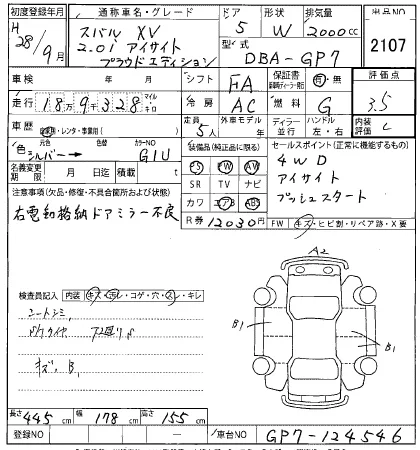 初度登録年月 通称車名・グレード ドア 形状 排気量 出品NO
H 28/9月 スバル XV 2.0i アイサイト プラウドエディション 5 W 2000cc 2107
型式 DBA-GP7
車検 年 月 シフト FA 保証書 有・無 評価点
走行 18万9千328 マイル キロ 冷房 AC 燃料 G 3.5
車歴 レンタ・事業用( ) 定員 5人 外車モデル 年 ディーラー 並行 ハンドル 左・右 内装 C
色 元色 シルバー→ 色替 カラーNO G1U 装備品(純正品に限る) セールスポイント(正常に機能するもの)
名義変更期限 月 日迄 積載 t PS PW AW 4WD
SR TV ナビ アイサイト
注意事項(欠品・修復・不具合箇所および状態) カワ エアB ABS プッシュスタート
右電動格納ドアミラー不良 R券 12030円 FW キズ・ヒビ割・リペア跡・X要
A2
検査員記入 内装 キズ・汚レ・コゲ・穴・スレ・キレ
シートシミ
B1
B1
キズ. B.
長さ 445cm 幅 178cm 高さ 155cm
登録NO — 車台NO GP7-124546